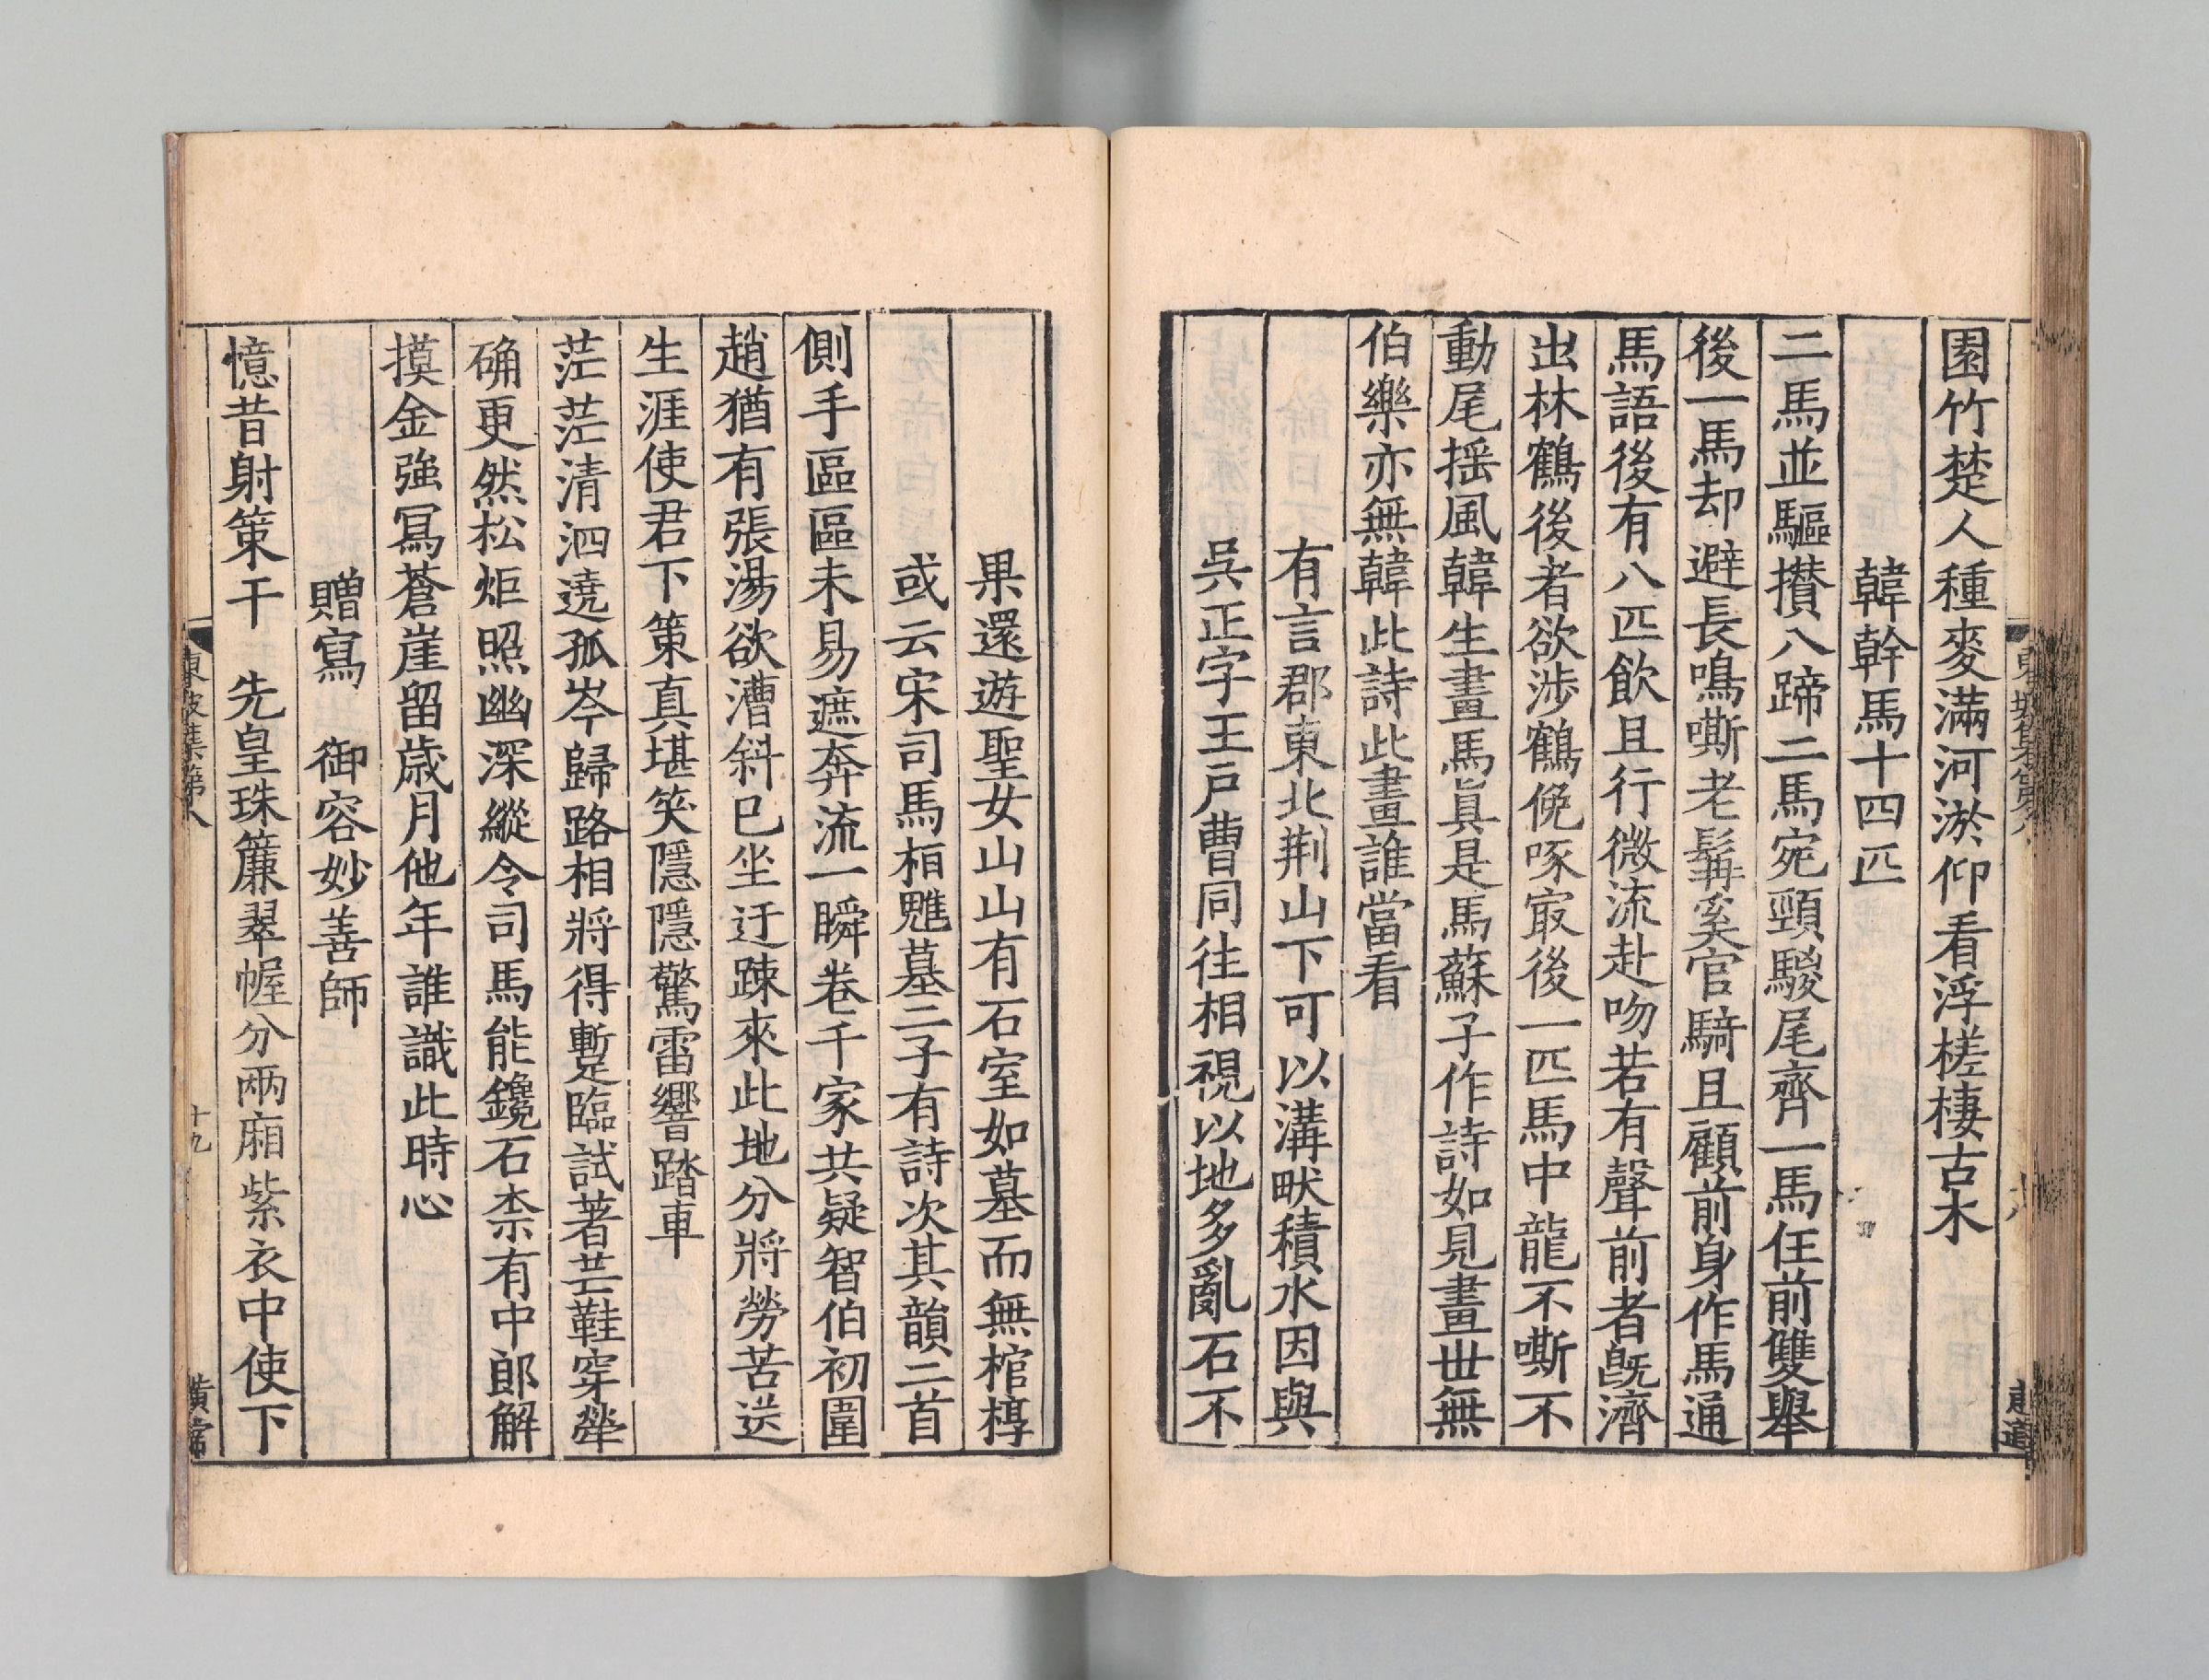 園竹楚人種麥滿河淤仰看浮槎棲古木
韓幹馬十四匹
二馬並驅攅八蹄二馬宛頸騣尾齊一馬任前雙舉
後一馬却避長鳴嘶老髯奚官騎且顧前身作馬通
馬語後有八匹飲且行微流赴吻若有聲前者旣濟
出林鶴後者欲涉鶴俛啄㝡後一匹馬中龍不嘶不
動尾揺風韓生畫馬眞是馬蘇子作詩如見畫世無
伯樂亦無韓此詩此畫誰當看
有言郡東北荆山下可以溝畎積水因與
吳正字王戶曹同往相視以地多亂石不
果還遊聖女山山有石室如墓而無棺椁
或云宋司馬桓魋墓二子有詩次其韻二首
側手區區未易遮奔流一瞬卷千家共疑智伯初圍
趙猶有張湯欲漕斜巳坐迂踈來此地分將勞苦送
生涯使君下策真堪笑隱隱驚雷響踏車
茫茫清泗遶孤岑歸路相將得蹔臨試著芒鞋穿犖
确更然松炬照幽深縱令司馬能鑱石柰有中郎解
摸金強冩蒼崖留歲月他年誰識此時心
贈寫 御容妙善師
憶昔射策干 先皇珠簾翠幄分兩廂紫衣中使下
東坡集第八
十九